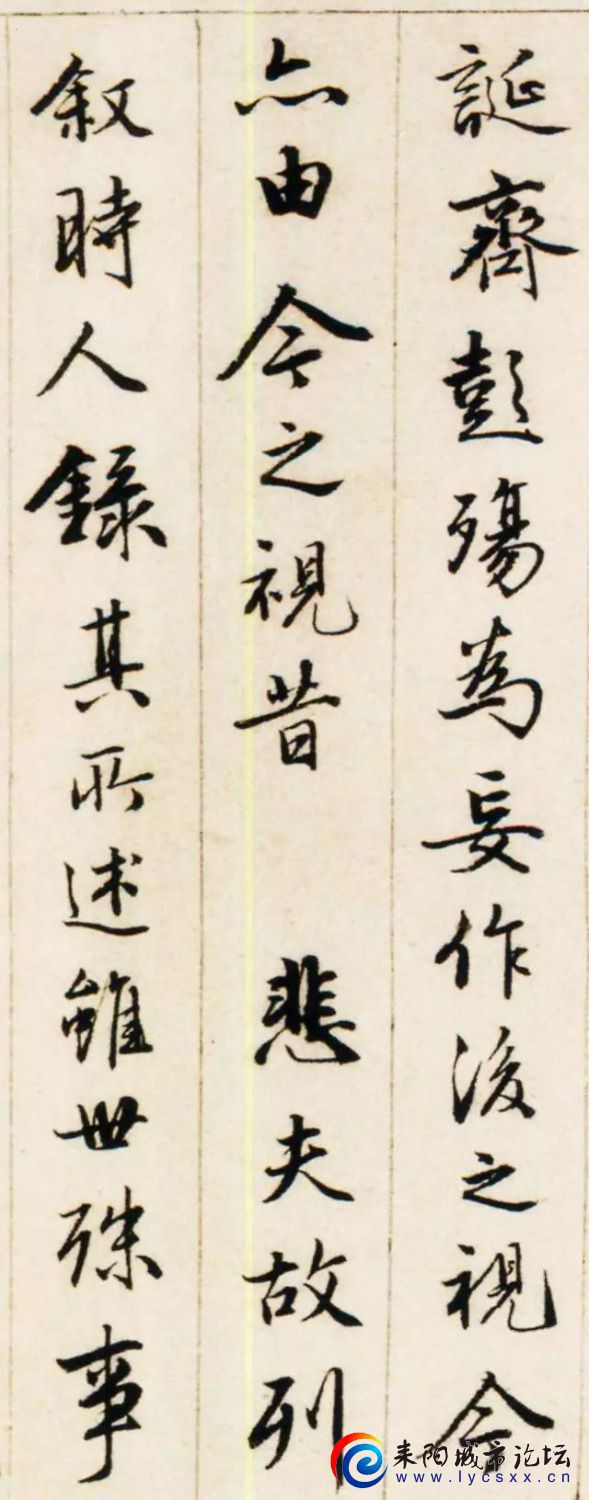 誕齊彭殤為妄作後之視今
亦由今之視昔 悲夫故列
叙時人錄其所述雖世殊事
耒阳城市论坛
www.lycsxx.cn